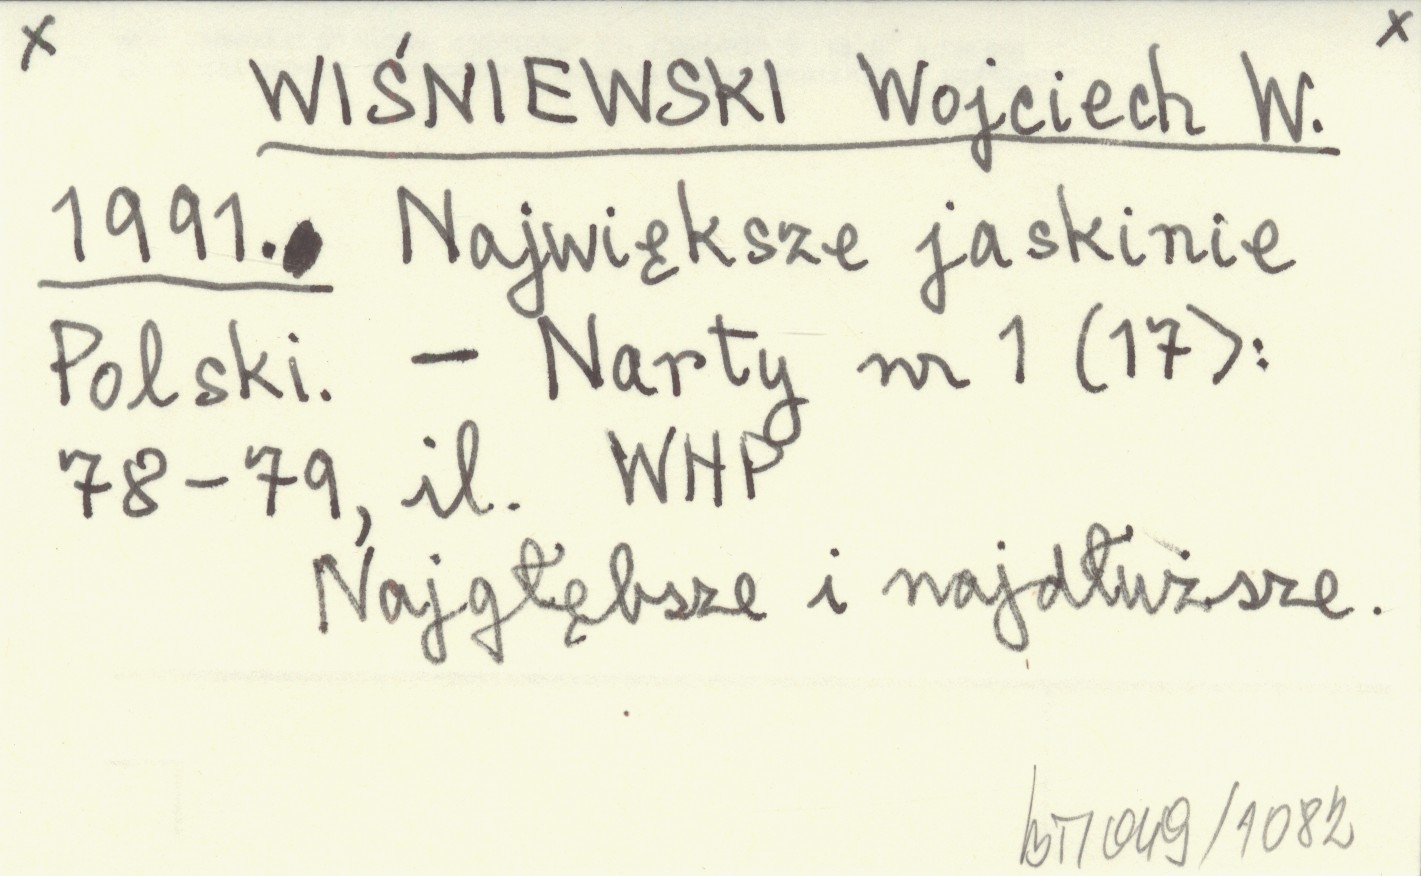 x x
WIŚNIEWSKI Wojciech W.
1991. Największe jaskinie
Polski. – Narty nr 1 (17):
78–79, il. WHP
Najgłębsze i najdłuższe.
049/1082